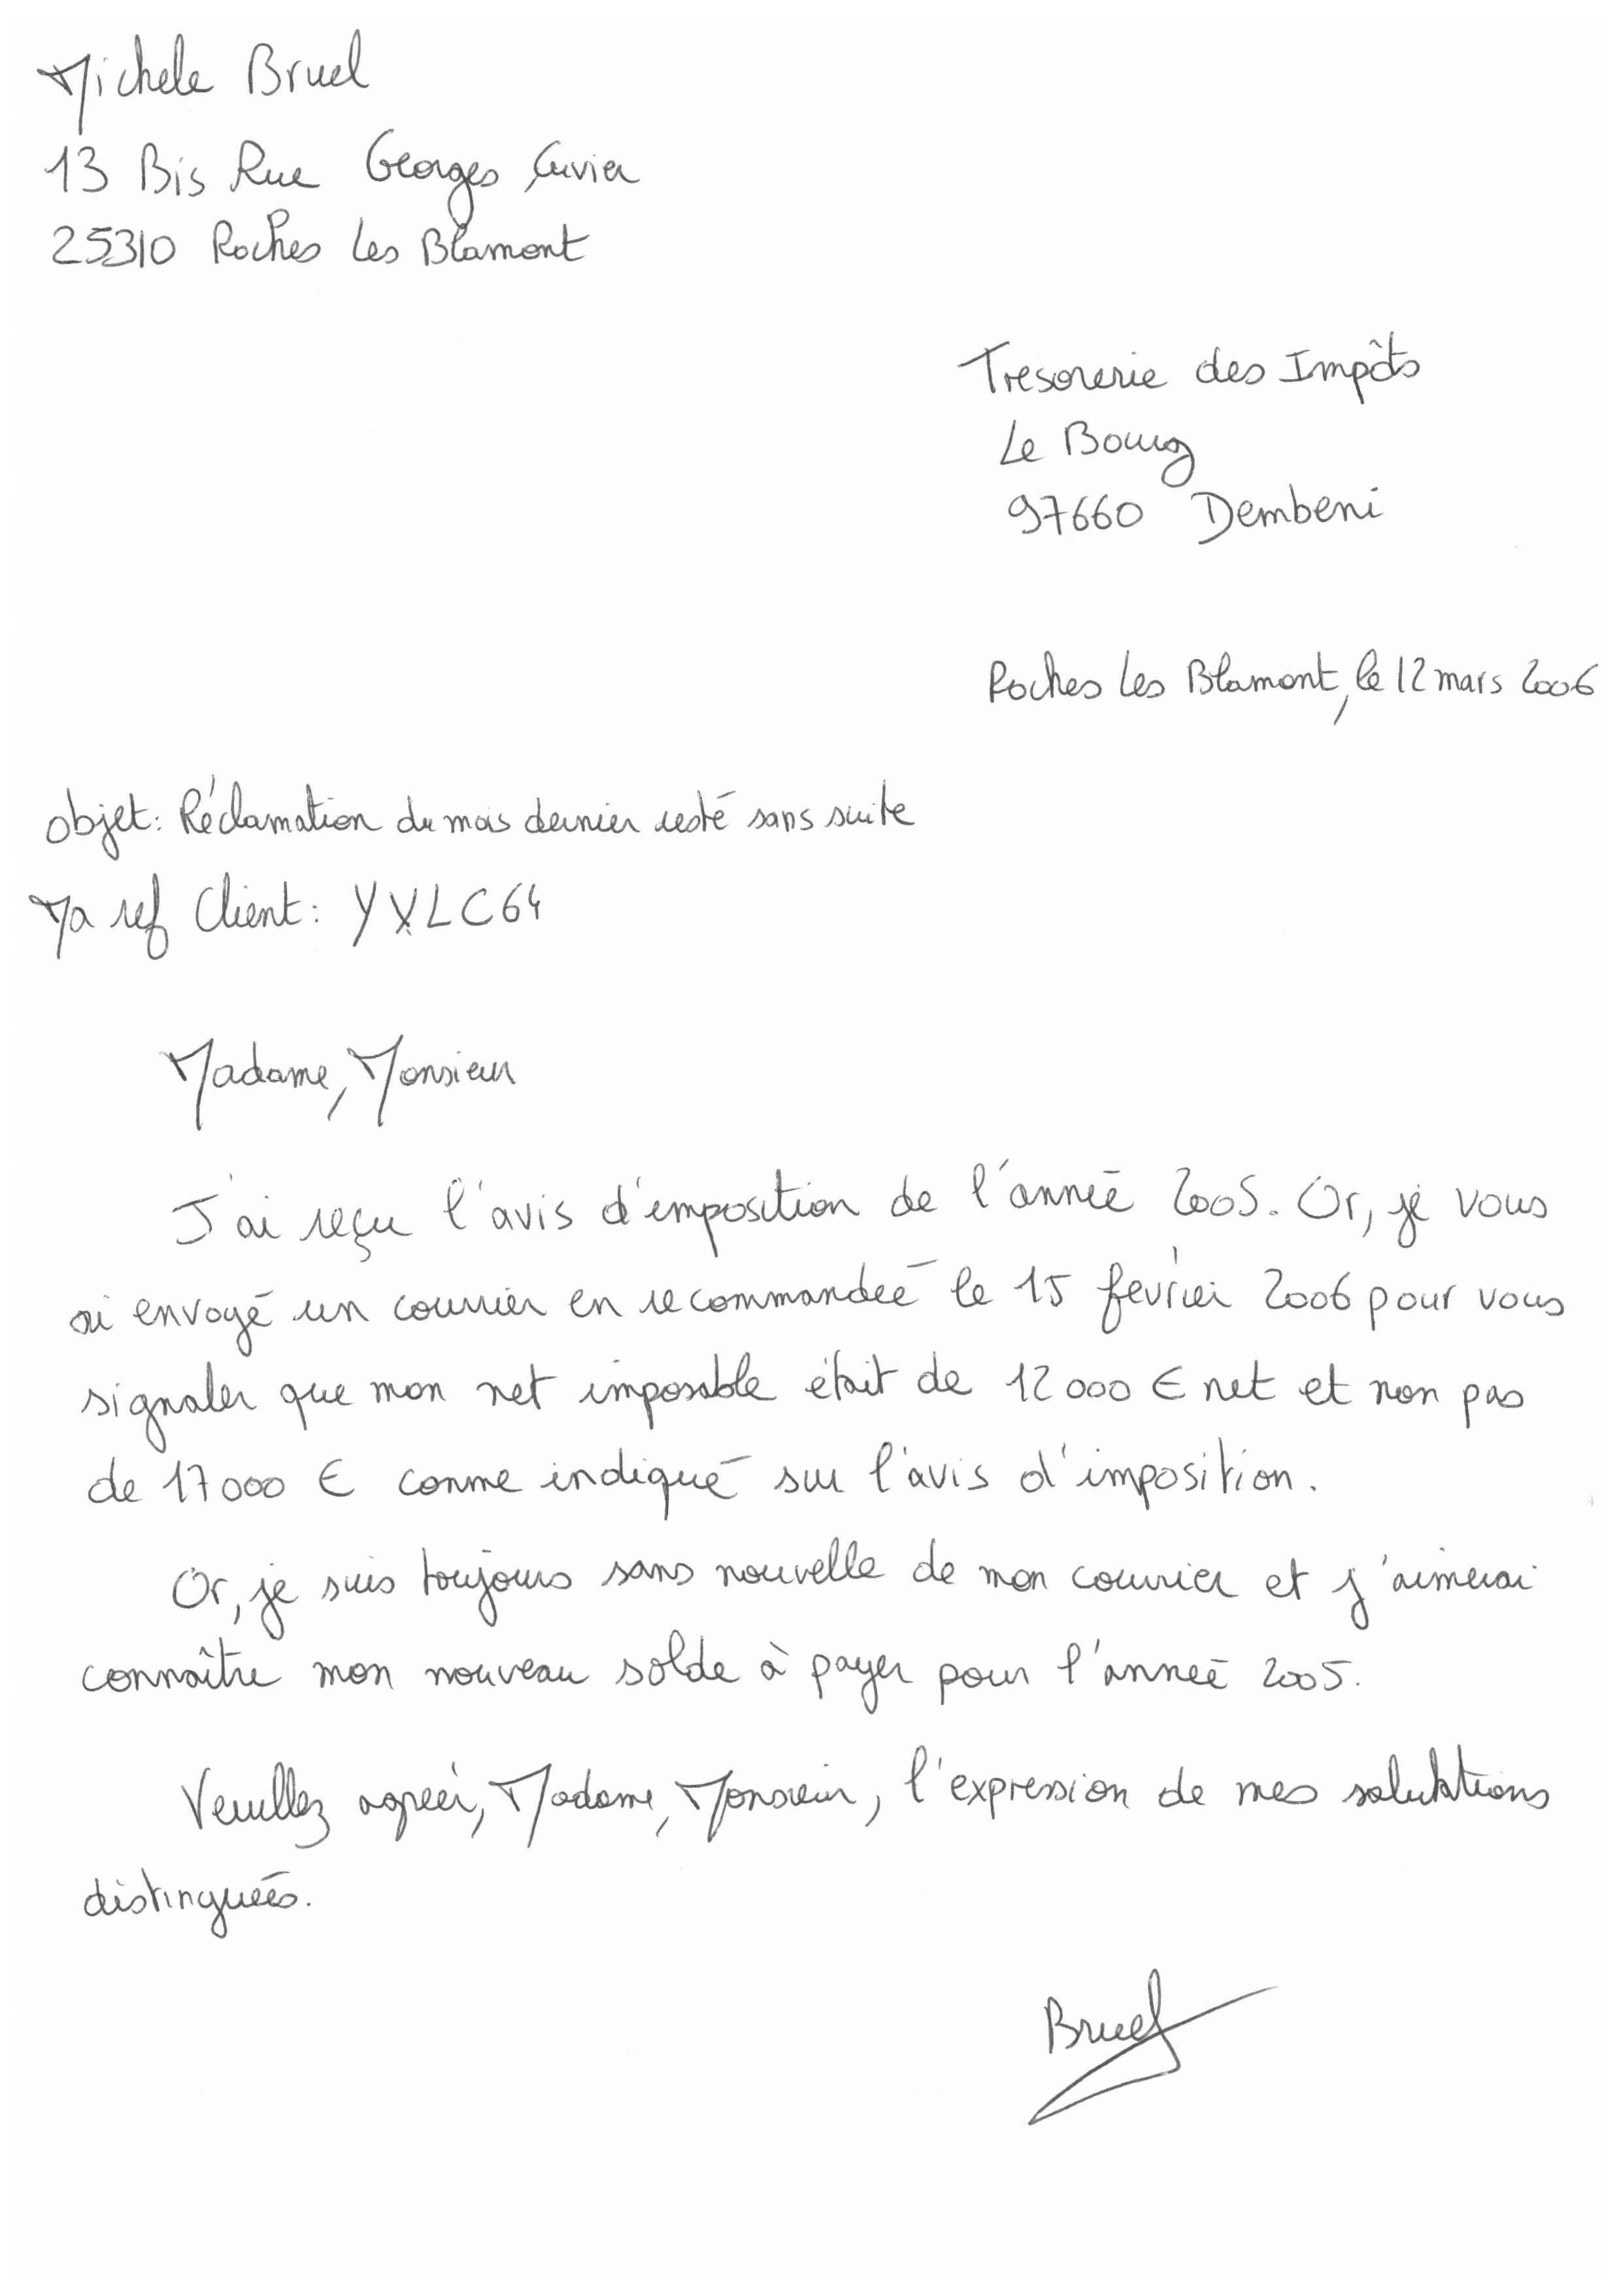 Michele Bruel
13 Bis Rue Georges Cuvier
25310 Roches Les Blamont
Tresorerie des Impôts
Le Bourg
97660 Dembeni
Roches Les Blamont, le 12 mars 2006
objet: Réclamation du mois dernier resté sans suite
Ma ref Client: YXLC64
Madame, Monsieur
J'ai reçu l'avis d'emposition de l'année 2005. Or, je vous
ai envoyé un courrier en recommandée le 15 fevrier 2006 pour vous
signaler que mon net imposable était de 12 000 € net et non pas
de 17 000 € comme indiqué sur l'avis d'imposition.
Or, je suis toujours sans nouvelle de mon courrier et j'aimerai
connaître mon nouveau solde à payer pour l'année 2005.
Veuillez agréer, Madame, Monsieur, l'expression de mes salutations
distinguées.
Bruel